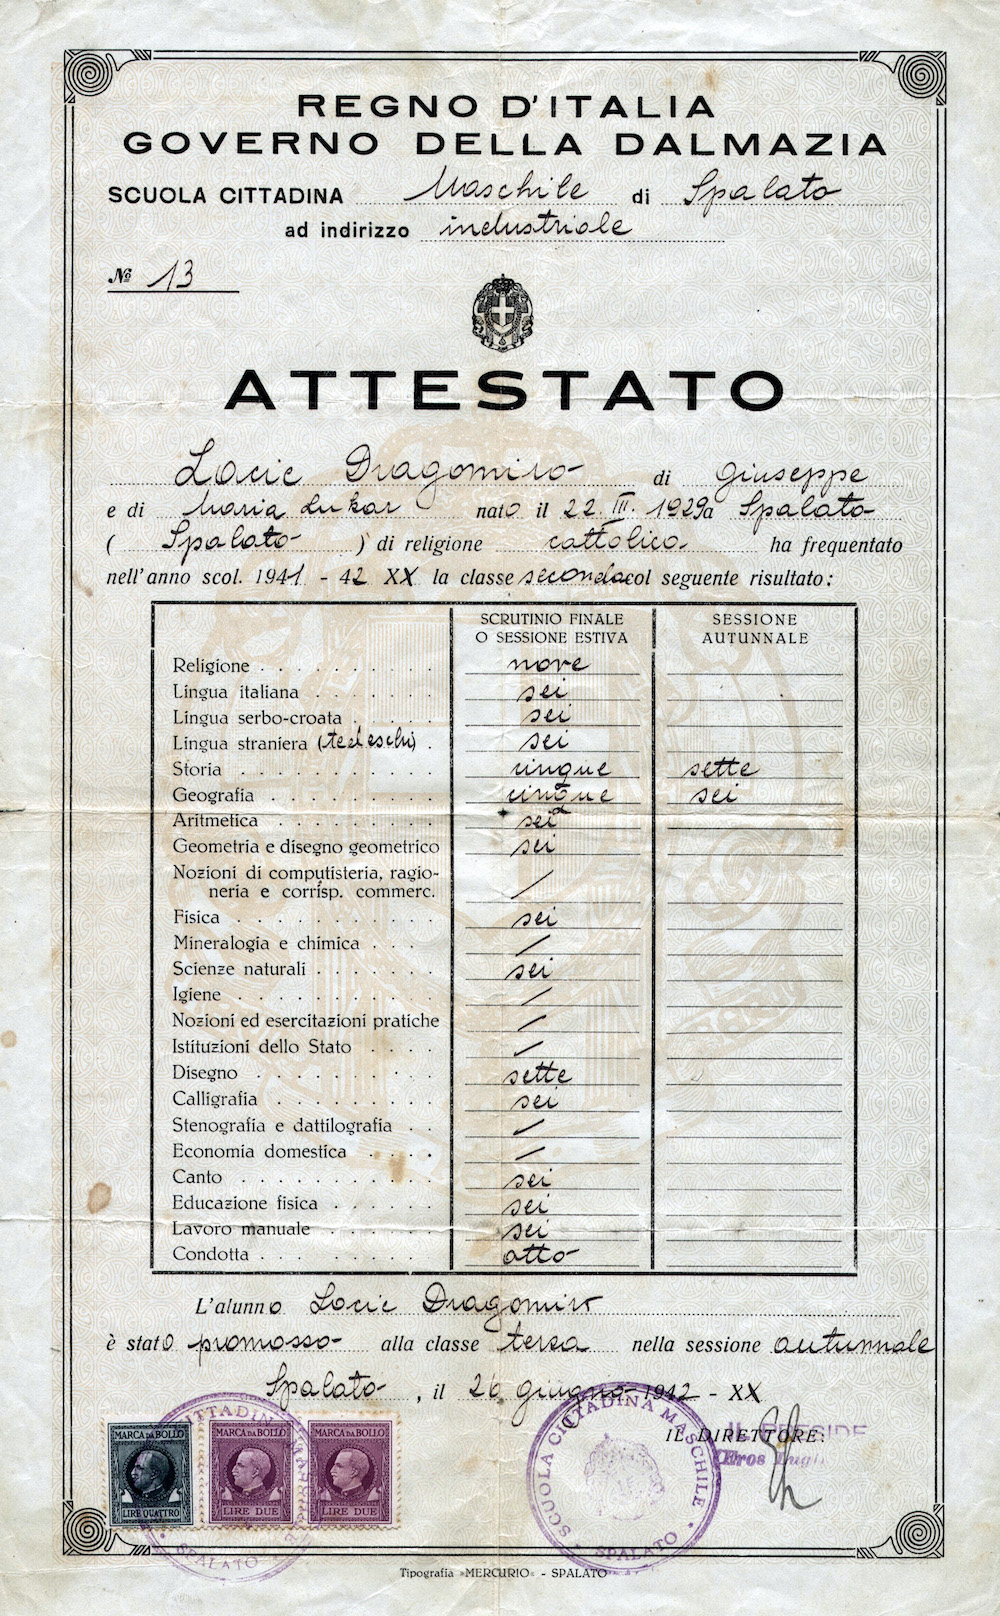 REGNO D'ITALIA
GOVERNO DELLA DALMAZIA
SCUOLA CITTADINA Maschile di Spalato
ad indirizzo industriale
No 13
ATTESTATO
Locic Dragomiro di Giuseppe
e di Maria Lukar nato il 22. III. 1929 a Spalato
( Spalato ) di religione cattolico ha frequentato
nell'anno scol. 1941 - 42 XX la classe seconda col seguente risultato:
SCRUTINIO FINALE O SESSIONE ESTIVA SESSIONE AUTUNNALE
Religione nove
Lingua italiana sei
Lingua serbo-croata sei
Lingua straniera (tedeschi) sei
Storia cinque sette
Geografia cinque sei
Aritmetica sei
Geometria e disegno geometrico sei
Nozioni di computisteria, ragio-
neria e corrisp. commerc. /
Fisica sei
Mineralogia e chimica /
Scienze naturali sei
Igiene /
Nozioni ed esercitazioni pratiche /
Istituzioni dello Stato /
Disegno sette
Calligrafia sei
Stenografia e dattilografia /
Economia domestica /
Canto sei
Educazione fisica sei
Lavoro manuale sei
Condotta otto
L'alunno Locic Dragomiro
è stato promosso alla classe terza nella sessione autunnale
Spalato, il 26 giugno 1942 - XX
IL DIRETTORE:
IL PRESIDE
Eros
MARCA DA BOLLO LIRE QUATTRO
MARCA DA BOLLO LIRE DUE
MARCA DA BOLLO LIRE DUE
SCUOLA CITTADINA MASCHILE
SPALATO
CITTADINA
SPALATO
Tipografia »MERCURIO« - SPALATO